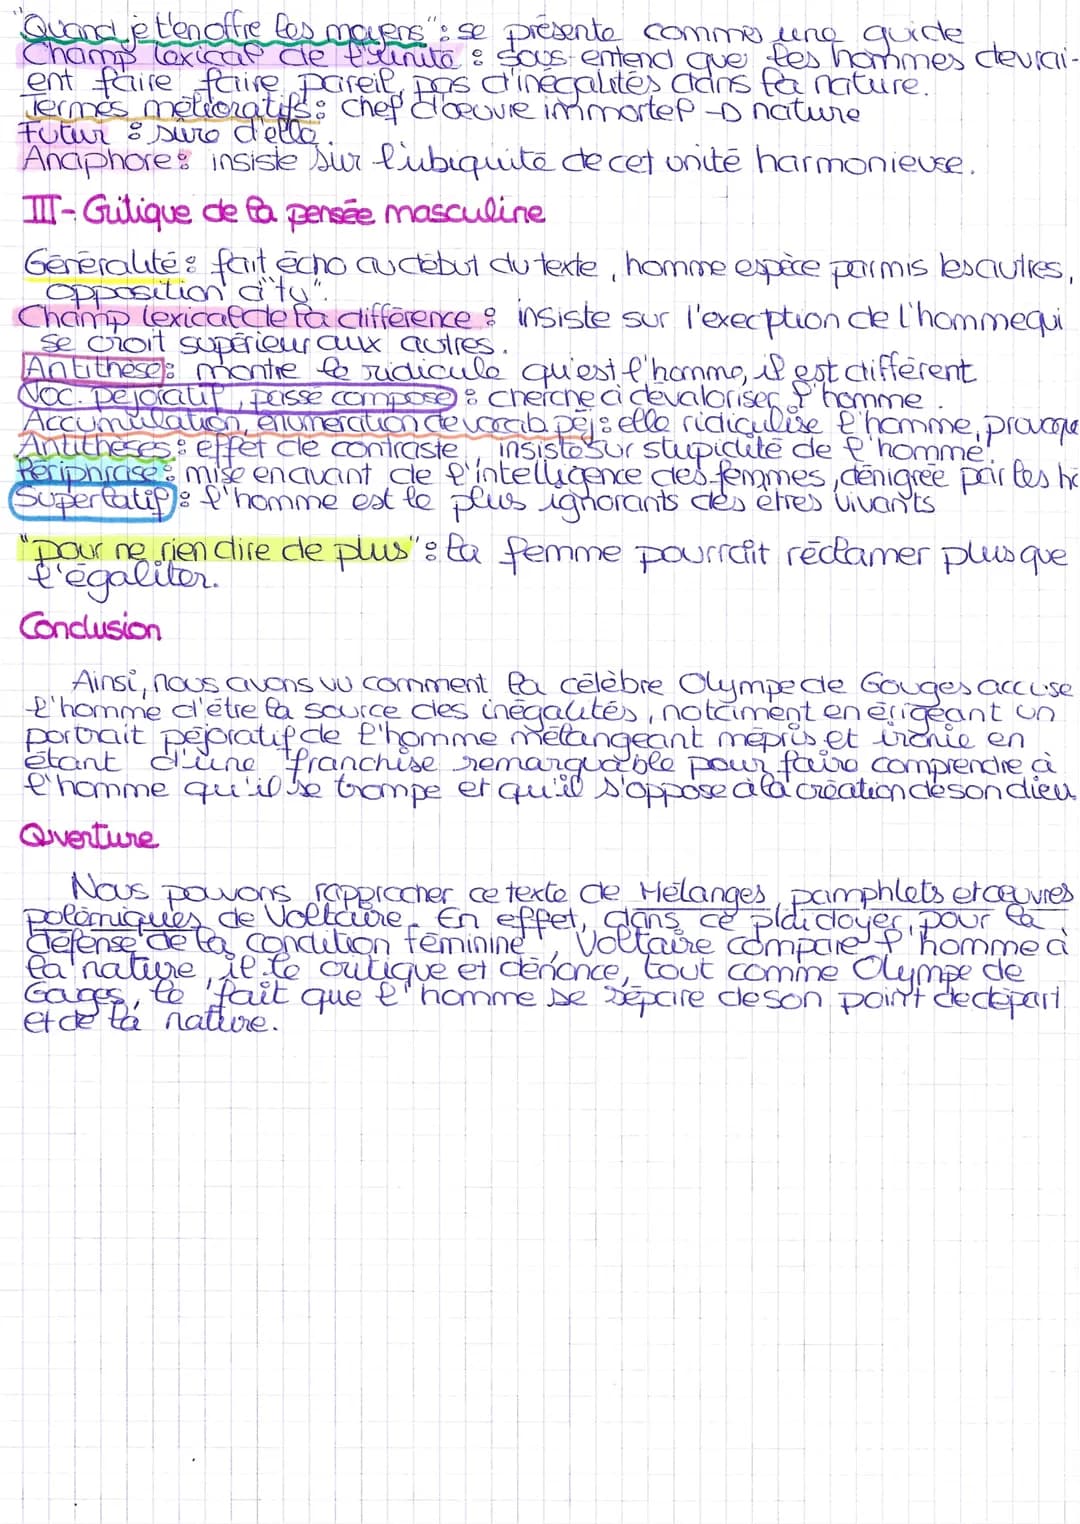 "Quand je t'en offre les moyens" : se présente comme une guide
Champ lexical de l'unité : sous-entend que les hommes devrai-
ent faire faire pareil, pas d'inégalités dans la nature.
Termes mélioratifs : chef d'œuvre immortel → nature
Futur : sûre d'elle.
Anaphore : insiste sur l'ubiquité de cet unité harmonieuse.
III- Critique de la pensée masculine
Généralité : fait écho au début du texte, homme espèce parmis les autres,
opposition à "tu".
Champ lexical de la différence : insiste sur l'exception de l'homme qui
se croit supérieur aux autres.
Antithèse : montre le ridicule qu'est l'homme, il est différent
Voc. péjoratif, passé composé : cherche à dévaloriser l'homme.
Accumulation, énumération de vocab péj : elle ridiculise l'homme, provoque
Antithèses : effet de contraste, insiste sur stupidité de l'homme.
Périphrase : mise en avant de l'intelligence des femmes, dénigrée par les ho
Superlatif : l'homme est le plus ignorants des êtres vivants
"pour ne rien dire de plus" : la femme pourrait réclamer plus que
l'égaliter.
Conclusion
Ainsi, nous avons vu comment la célèbre Olympe de Gouges accuse
l'homme d'être la source des inégalités, notamment en érigeant un
portrait péjoratif de l'homme mélangeant mépris et ironie en
étant d'une franchise remarquable pour faire comprendre à
l'homme qu'il se trompe et qu'il s'oppose à la création de son dieu.
Ouverture
Nous pouvons rapprocher ce texte de Mélanges, pamphlets et œuvres
polémiques de Voltaire. En effet, dans ce plaidoyer pour la
défense de la condition féminine, Voltaire compare l'homme à
la nature, il le critique et dénonce, tout comme Olympe de
Gouges, le fait que l'homme se sépare de son point de départ
et de la nature.